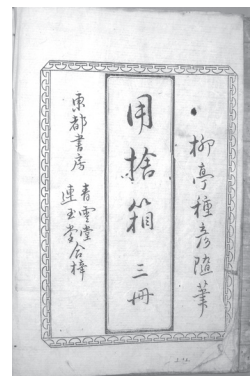 柳亭種彦随筆
用捨箱 三冊
東都書房
青雲堂
連玉堂合梓